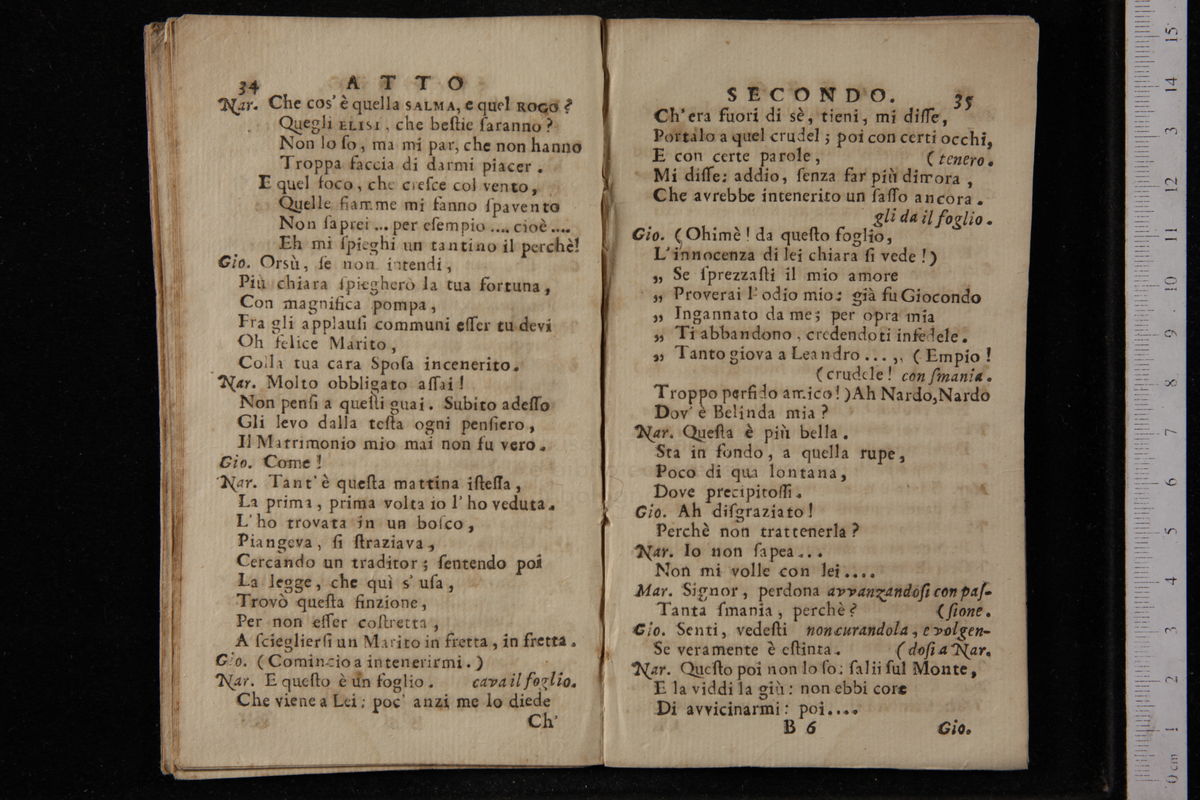 34 ATTO
Nar. Che cos' è quella SALMA, e quel ROGO?
Quegli ELISI, che beſtie ſaranno?
Non lo ſo, ma mi par, che non hanno
Troppa faccia di darmi piacer.
E quel foco, che creſce col vento,
Quelle fiamme mi fanno ſpavento
Non ſaprei ... per eſempio .... cioè ....
Eh mi ſpieghi un tantino il perchè!
Gio. Orsù, ſe non intendi,
Più chiara ſpiegherò la tua fortuna,
Con magnifica pompa,
Fra gli applauſi communi eſſer tu devi
Oh felice Marito,
Colla tua cara Spoſa incenerito.
Nar. Molto obbligato aſſai!
Non penſi a queſti guai. Subito adeſſo
Gli levo dalla teſta ogni penſiero,
Il Matrimonio mio mai non fu vero.
Gio. Come!
Nar. Tant' è queſta mattina iſteſſa,
La prima, prima volta io l' ho veduta.
L' ho trovata in un boſco,
Piangeva, ſi ſtraziava,
Cercando un traditor; ſentendo poi
La legge, che quì s' uſa,
Trovò queſta finzione,
Per non eſſer coſtretta,
A ſcieglierſi un Marito in fretta, in fretta.
Gio. (Comincio a intenerirmi.)
Nar. E queſto è un foglio. cava il foglio.
Che viene a Lei; poc' anzi me lo diede
Ch'
SECONDO. 35
Ch' era fuori di sè, tieni, mi diſſe,
Portalo a quel crudel; poi con certi occhi,
E con certe parole, (tenero.
Mi diſſe: addio, ſenza far più dimora,
Che avrebbe intenerito un ſaſſo ancora.
gli da il foglio.
Gio. (Ohimè! da queſto foglio,
L' innocenza di lei chiara ſi vede!)
„ Se ſprezzaſti il mio amore
„ Proverai l' odio mio: già fu Giocondo
„ Ingannato da me; per opra mia
„ Ti abbandono, credendoti infedele.
„ Tanto giova a Leandro ... ,, (Empio!
(crudele! con ſmania.
Troppo perfido amico!) Ah Nardo, Nardo
Dov' è Belinda mia?
Nar. Queſta è più bella.
Sta in fondo, a quella rupe,
Poco di qua lontana,
Dove precipitoſſi.
Gio. Ah diſgraziato!
Perchè non trattenerla?
Nar. Io non ſapea...
Non mi volle con lei....
Mar. Signor, perdona avvanzandoſi con paſ-
Tanta ſmania, perchè? (ſione.
Gio. Senti, vedeſti non curandola, e volgen-
Se veramente è eſtinta. (doſi a Nar.
Nar. Queſto poi non lo ſo: ſalii ſul Monte,
E la viddi la giù: non ebbi core
Di avvicinarmi: poi....
B 6 Gio.
0 cm 1 2 3 4 5 6 7 8 9 10 11 12 13 14 15